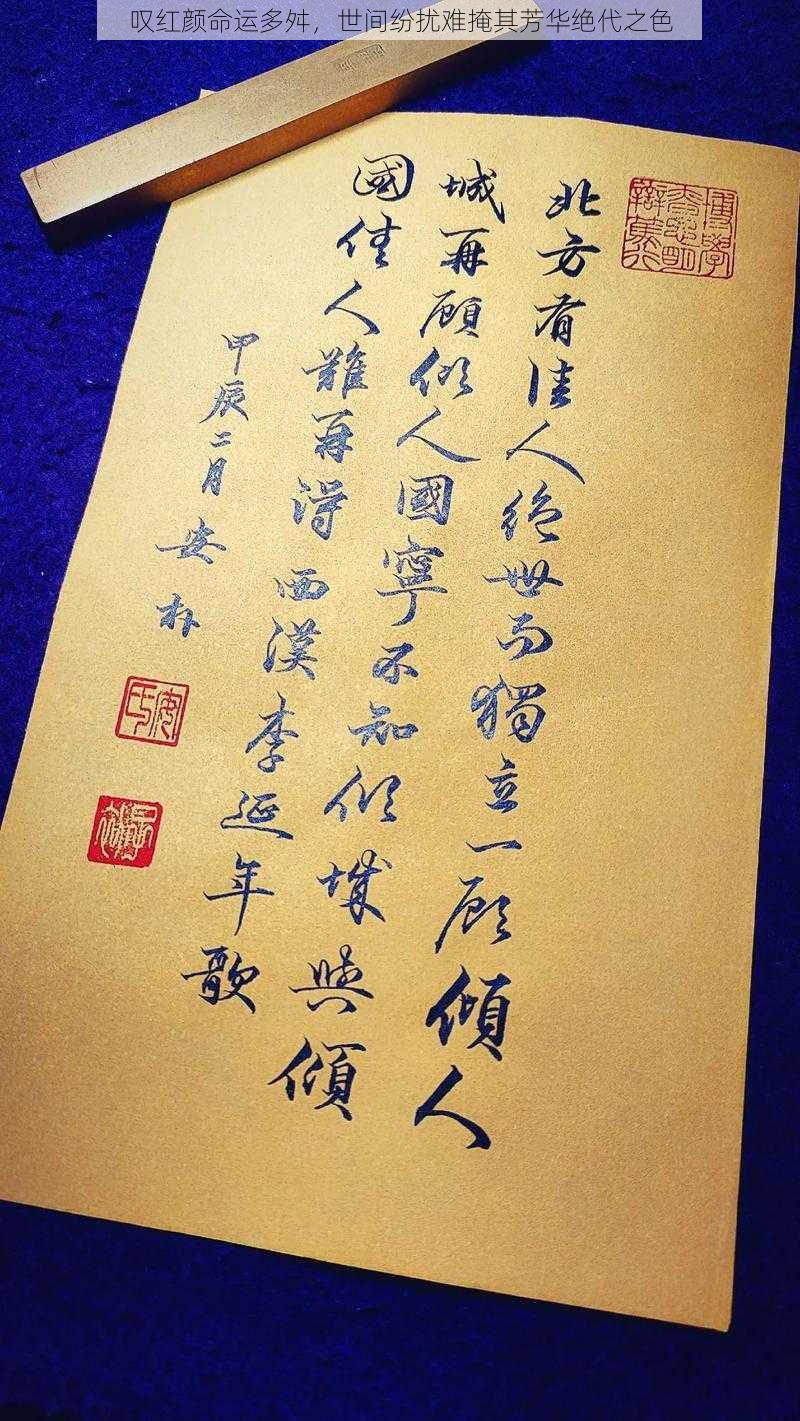 叹红颜命运多舛，世间纷扰难掩其芳华绝代之色
北方有佳人絕世而獨立一顧傾人
城再顧傾人國寧不知傾城與傾
國佳人難再得 西漢李延年歌
甲辰二月 安朴
安氏